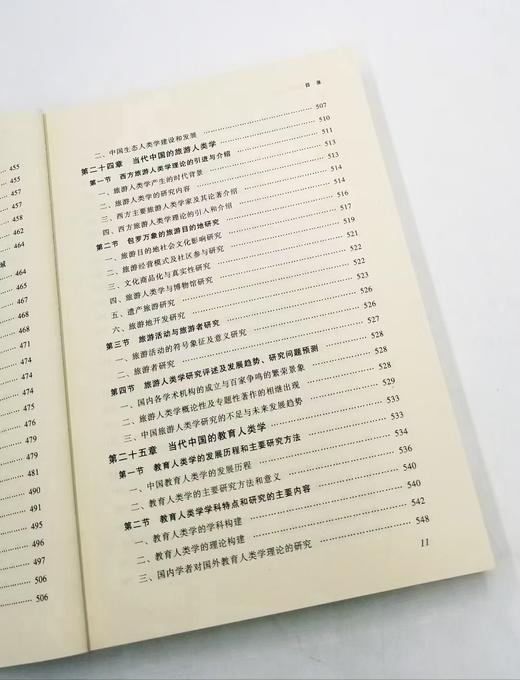 455
455
457
457
458
462
464
域
464
466
467
468
471
474
474
479
481
490
495
496
497
506
506
目 录
二、中国生态人类学建设和发展 507
第二十四章 当代中国的旅游人类学 510
第一节 西方旅游人类学理论的引进与介绍 511
一、旅游人类学产生的时代背景 513
二、旅游人类学的研究内容 513
三、西方主要旅游人类学家及其论著介绍 514
四、西方旅游人类学理论的引入和介绍 514
第二节 包罗万象的旅游目的地研究 516
一、旅游目的地社会文化影响研究 517
二、旅游经营模式及社区参与研究 519
三、文化商品化与真实性研究 521
四、旅游人类学与博物馆研究 521
五、遗产旅游研究 522
六、旅游地开发研究 523
第三节 旅游活动与旅游者研究 526
一、旅游活动的符号象征及意义研究 526
二、旅游者研究 527
第四节 旅游人类学研究评述及发展趋势、研究问题预测 528
一、国内各学术机构的成立与百家争鸣的繁荣景象 528
二、旅游人类学概论性及专题性著作的相继出现 528
三、中国旅游人类学研究的不足与未来发展趋势 529
第二十五章 当代中国的教育人类学 533
第一节 教育人类学的发展历程和主要研究方法 533
一、中国教育人类学的发展历程 534
二、教育人类学的主要研究方法和意义 536
第二节 教育人类学学科特点和研究的主要内容 540
一、教育人类学的学科构建 540
二、教育人类学的理论构建 542
三、国内学者对国外教育人类学理论的研究 548
11